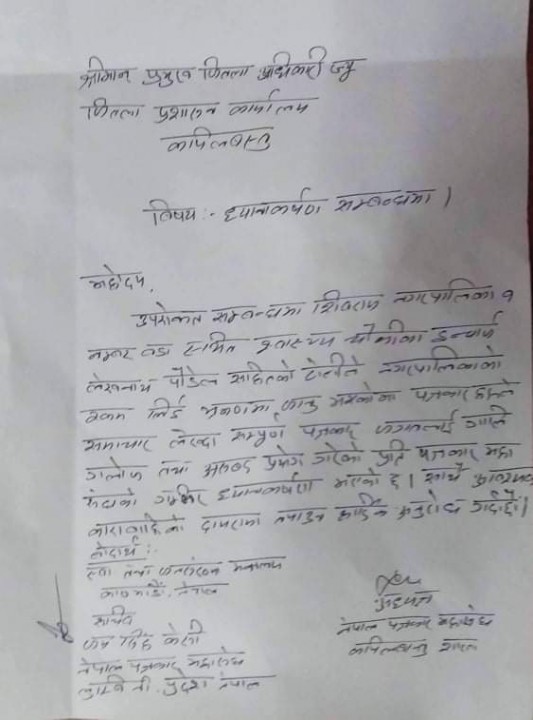 श्रीमान प्रमुख जिल्ला अधिकारी ज्यू
जिल्ला प्रशासन कार्यालय
कपिलवस्तु
विषय :- ध्यानाकर्षण सम्बन्धमा ।
महोदय,
उपरोक्त सम्बन्धमा शिवराज नगरपालिका १
नम्बर वडा स्थित स्वास्थ्य चौकीका इन्चार्ज
लेखनाथ पौडेल सहितको टोलीले नगरपालिकाको
रकम लिई भ्रमणमा गएको पत्रकार हरुले
समाचार लेख्दा सम्पूर्ण पत्रकार जगतलाई गाली
गलौज तथा अपशब्द प्रयोग गरेको प्रति पत्रकार महा
संघको गम्भिर ध्यानाकर्षण भएको छ । साथै आवश्यक
कारवाहीको दायरामा ल्याउन हार्दिक अनुरोध गर्दछौं ।
बोधार्थ :-
तथा जनसंख्या मन्त्रालय
काठमाडौं, नेपाल
सचिव
नेपाल पत्रकार महासंघ
लुम्बिनी प्रदेश नेपाल
अध्यक्ष
नेपाल पत्रकार महासंघ
कपिलवस्तु शाखा